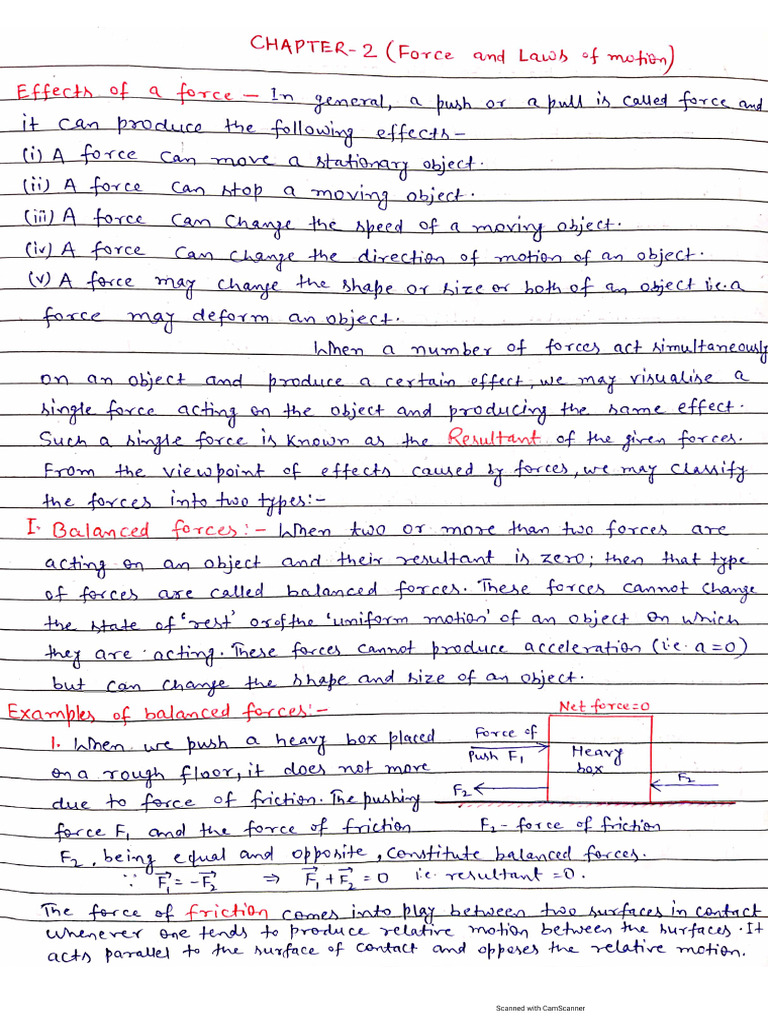 CHAPTER-2 (Force and Laws of motion)
Effects of a force – In general, a push or a pull is called force and
it can produce the following effects–
(i) A force can move a stationary object.
(ii) A force can stop a moving object.
(iii) A force can change the speed of a moving object.
(iv) A force can change the direction of motion of an object.
(v) A force may change the shape or size or both of an object i.e. a
force may deform an object.
When a number of forces act simultaneously
on an object and produce a certain effect, we may visualise a
single force acting on the object and producing the same effect.
Such a single force is known as the Resultant of the given forces.
From the viewpoint of effects caused by forces, we may classify
the forces into two types:-
I. Balanced forces:- When two or more than two forces are
acting on an object and their resultant is zero; then that type
of forces are called balanced forces. These forces cannot change
the state of 'rest' or of the 'uniform motion' of an object on which
they are acting. These forces cannot produce acceleration (i.e. a=0)
but can change the shape and size of an object.
Examples of balanced forces:-
Net force=0
1. When we push a heavy box placed
Force of
Push F₁
Heavy
box
on a rough floor, it does not move
F₂
F₂
due to force of friction. The pushing
force F₁ and the force of friction
F₂ - force of friction
F₂, being equal and opposite, constitute balanced forces.
∵ F⃗₁ = -F⃗₂ ⇒ F⃗₁ + F⃗₂ = 0 i.e. resultant = 0.
The force of friction comes into play between two surfaces in contact
whenever one tends to produce relative motion between the surfaces. It
acts parallel to the surface of contact and opposes the relative motion.
Scanned with CamScanner